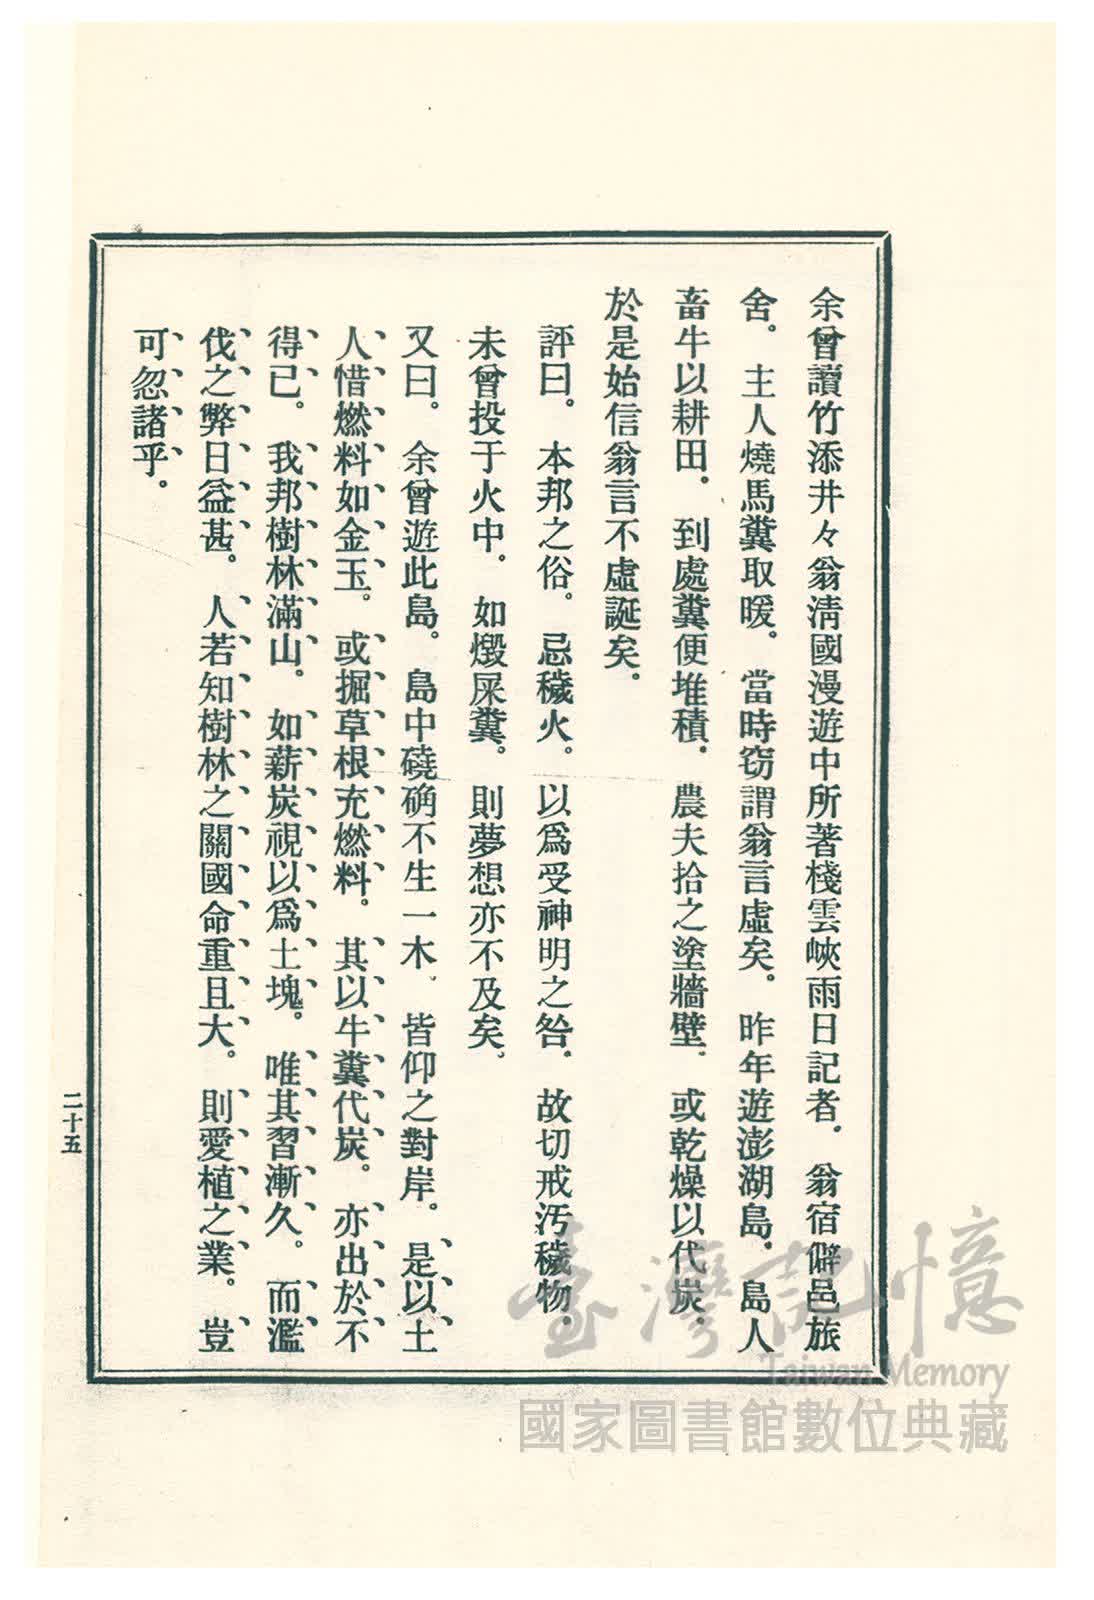 余曾讀竹添井々翁淸國漫遊中所著棧雲峽雨日記者。翁宿僻邑旅
舍。主人燒馬糞取暖。當時窃謂翁言虛矣。昨年遊澎湖島。島人
畜牛以耕田。到處糞便堆積。農夫拾之塗牆壁。或乾燥以代炭。
於是始信翁言不虛誕矣。
評曰。本邦之俗。忌穢火。以爲受神明之咎。故切戒汚穢物。
未曾投于火中。如燬屎糞。則夢想亦不及矣。
又曰。余曾遊此島。島中磽确不生一木。皆仰之對岸。是以土
人惜燃料如金玉。或掘草根充燃料。其以牛糞代炭。亦出於不
得已。我邦樹林滿山。如薪炭視以爲土塊。唯其習漸久。而濫
伐之弊日益甚。人若知樹林之關國命重且大。則愛植之業。豈
可忽諸乎。
二十五
臺灣記憶
Taiwan Memory
國家圖書館數位典藏